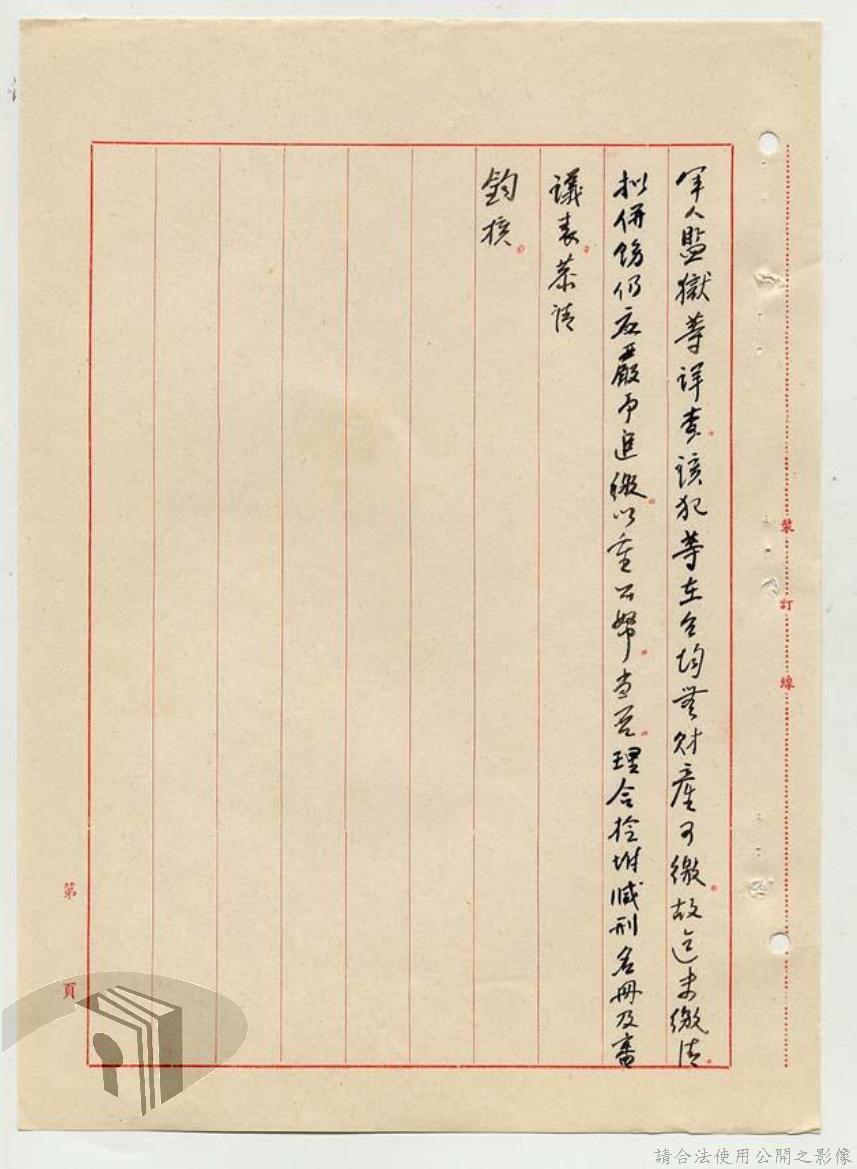 軍人監獄等詳查。該犯等在台均無財產可繳。故迄未繳清。
擬併飭仍應嚴予追繳。以重公帑。當否。理合檢附減刑名冊及審
議表。恭請
鈞核。
裝
訂
線
第
頁
請合法使用公開之影像